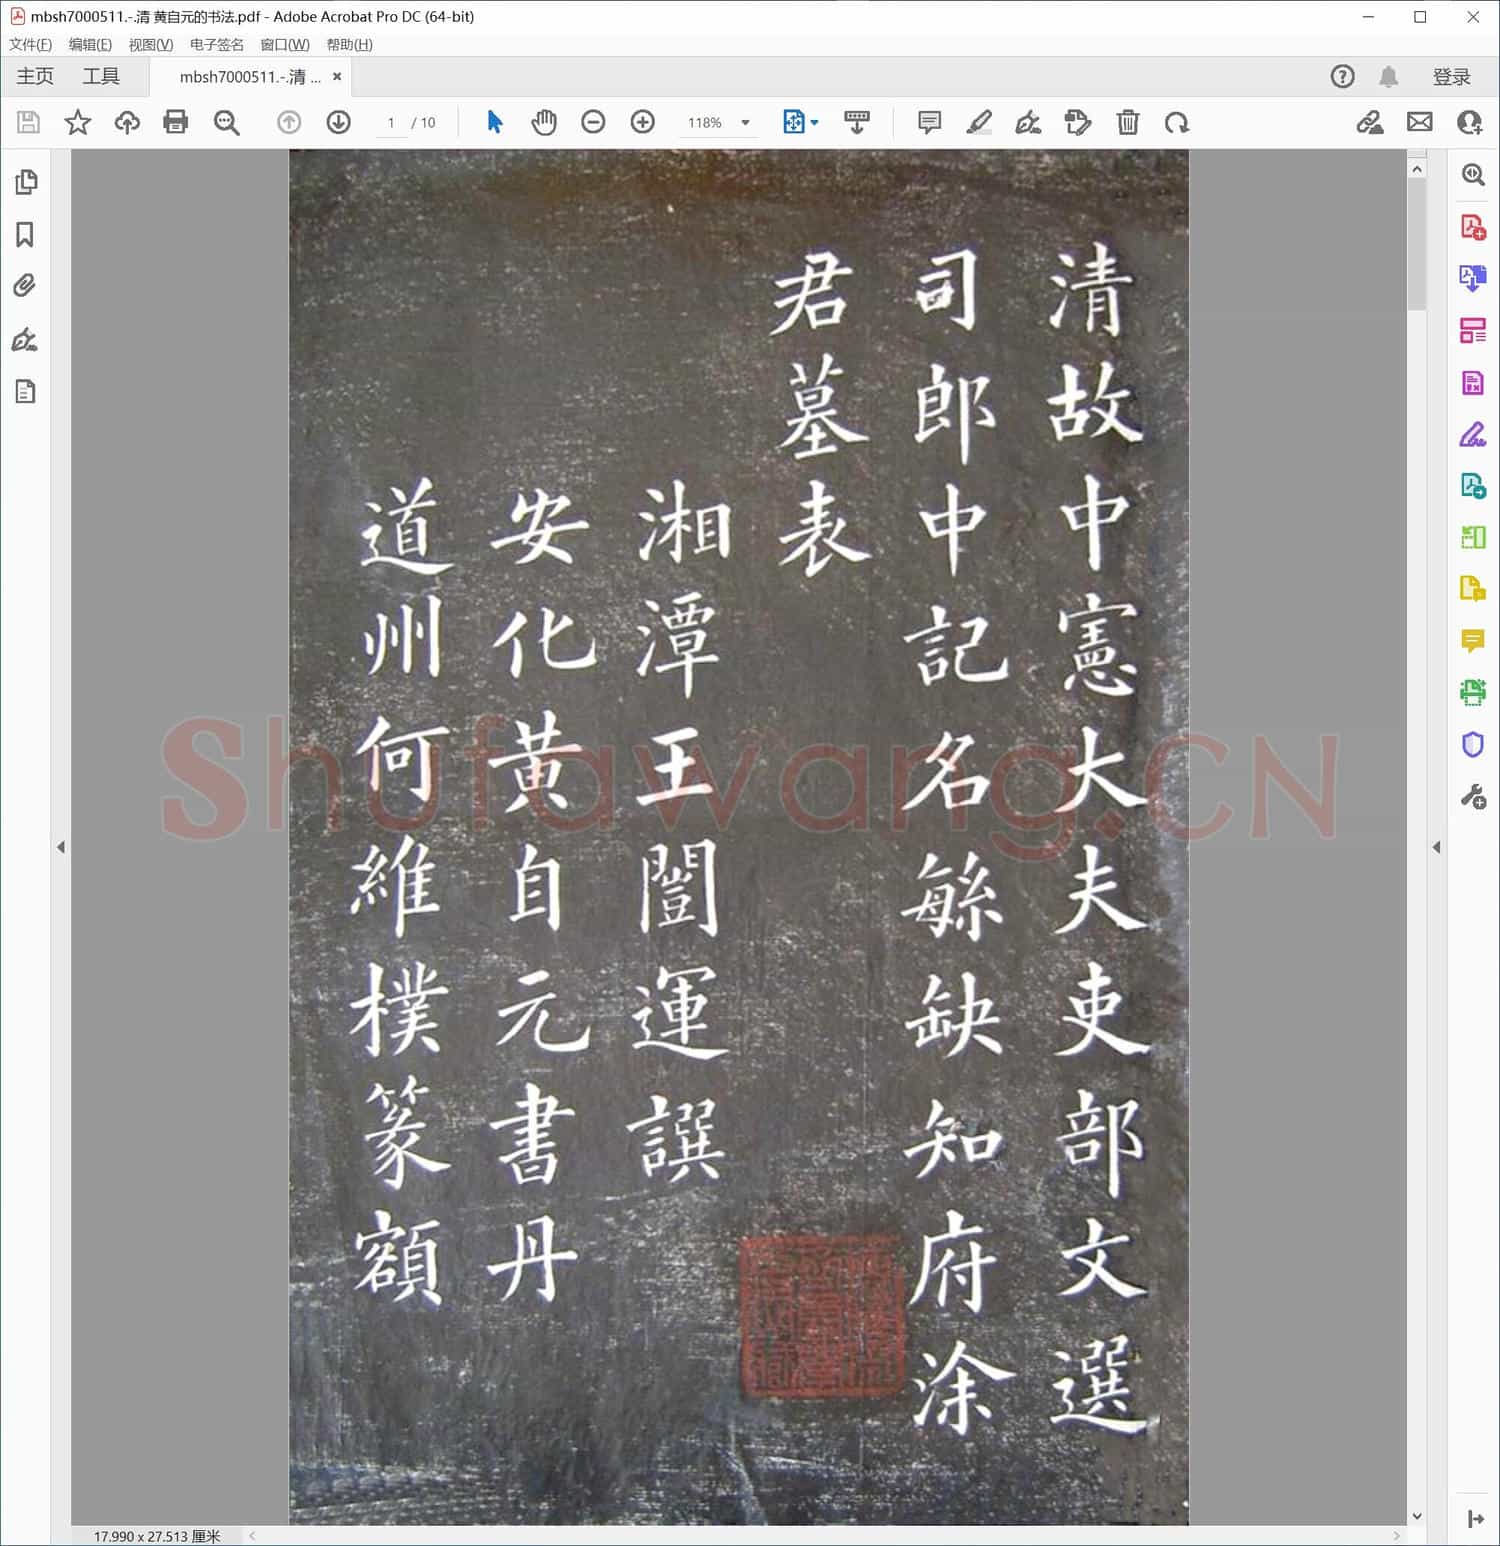 mbsh7000511.-.清 黄自元的书法.pdf - Adobe Acrobat Pro DC (64-bit)
文件(F) 编辑(E) 视图(V) 电子签名 窗口(W) 帮助(H)
主页 工具 mbsh7000511.-.清 ... × 登录
1 / 10 118%
清故中憲大夫吏部文選
司郎中記名䋣缺知府涂
君墓表
湘潭王闓運譔
安化黄自元書丹
道州何維樸篆額
Shufawang.CN
17.990 x 27.513 厘米